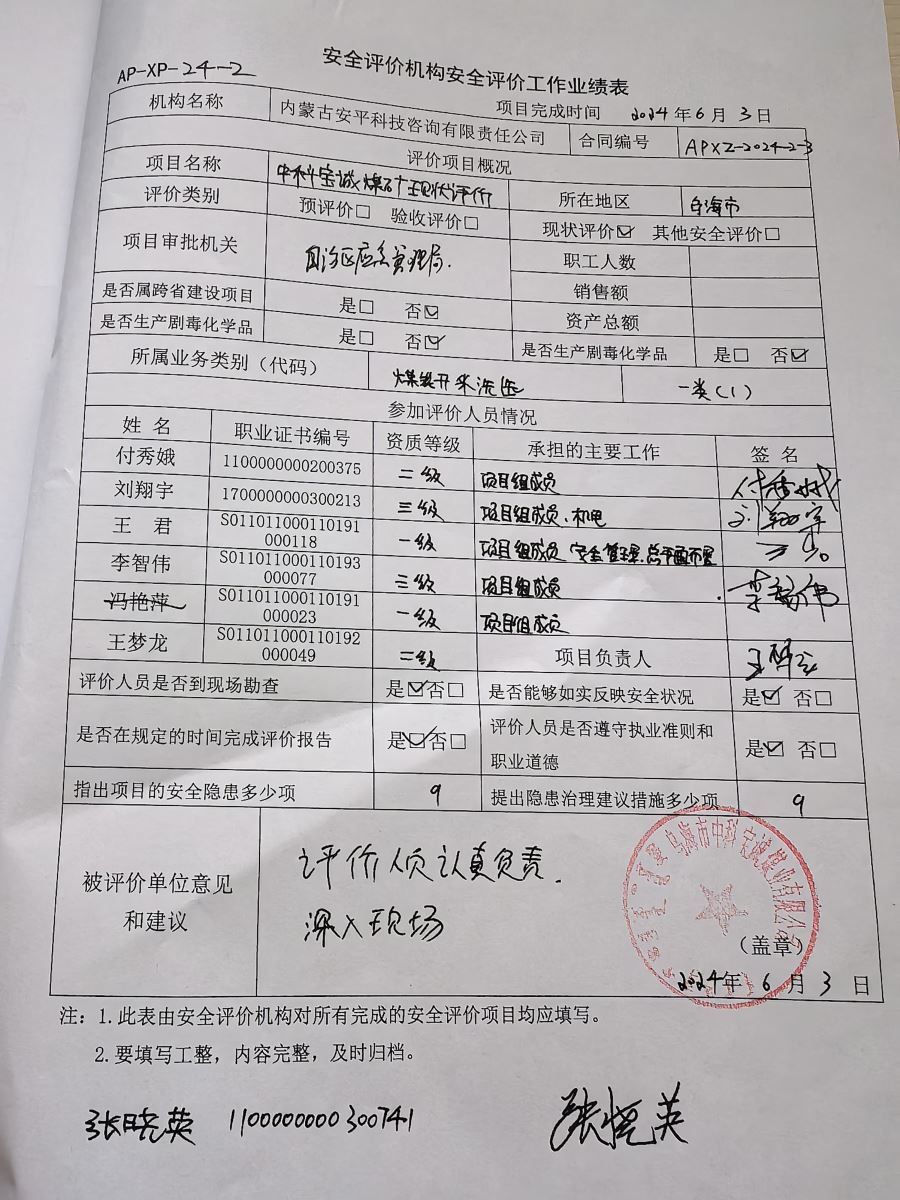 安全评价机构安全评价工作业绩表
AP-XP-24-2
项目完成时间 2024年6月3日
机构名称 内蒙古安平科技咨询有限责任公司 合同编号 APXZ-2024-2-3
评价项目概况
项目名称 中科宝诚煤矿现状评价 所在地区 乌海市
评价类别 预评价□ 验收评价□ 现状评价☑ 其他安全评价□
项目审批机关 自治区应急管理局. 职工人数
销售额
资产总额
是否属跨省建设项目 是□ 否☑
是否生产剧毒化学品 是□ 否☑ 是否生产剧毒化学品 是□ 否☑
所属业务类别（代码） 煤炭开采洗选 一类(1)
参加评价人员情况
姓 名 职业证书编号 资质等级 承担的主要工作 签 名
付秀娥 1100000000200375 二级 项目组成员 付秀娥
刘翔宇 1700000000300213 三级 项目组成员、机电 刘翔宇
王 君 S011011000110191000118 一级 项目组成员 安全管理、总平面布置 王君
李智伟 S011011000110193000077 三级 项目组成员 李智伟
冯艳萍 S011011000110191000023 一级 项目组成员
王梦龙 S011011000110192000049 二级 项目负责人 王梦龙
评价人员是否到现场勘查 是☑否□ 是否能够如实反映安全状况 是☑ 否□
是否在规定的时间完成评价报告 是☑否□ 评价人员是否遵守执业准则和
职业道德 是☑ 否□
指出项目的安全隐患多少项 9 提出隐患治理建议措施多少项 9
被评价单位意见
和建议
评价人员认真负责.
深入现场
乌海市中科宝诚煤业有限公司
（盖章）
2024年6月3日
注：1.此表由安全评价机构对所有完成的安全评价项目均应填写。
2.要填写工整，内容完整，及时归档。
张晓英 1100000000300741 张晓英